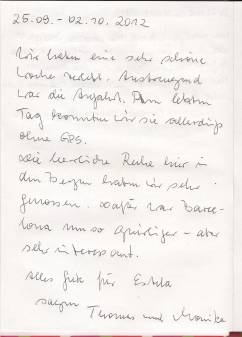 25.09. - 02.10. 2012
Wir hatten eine sehr schöne
Woche verlebt. Anstrengend
war die Anfahrt. Am letzten
Tag konnten wir sie allerdings
ohne GPS.
Die herrliche Ruhe hier in
den Bergen hatten wir sehr
genossen. Dafür war Barce-
lona um so quirliger - aber
sehr interessant.
Alles Gute für Estela
sagen Thomas und Monika